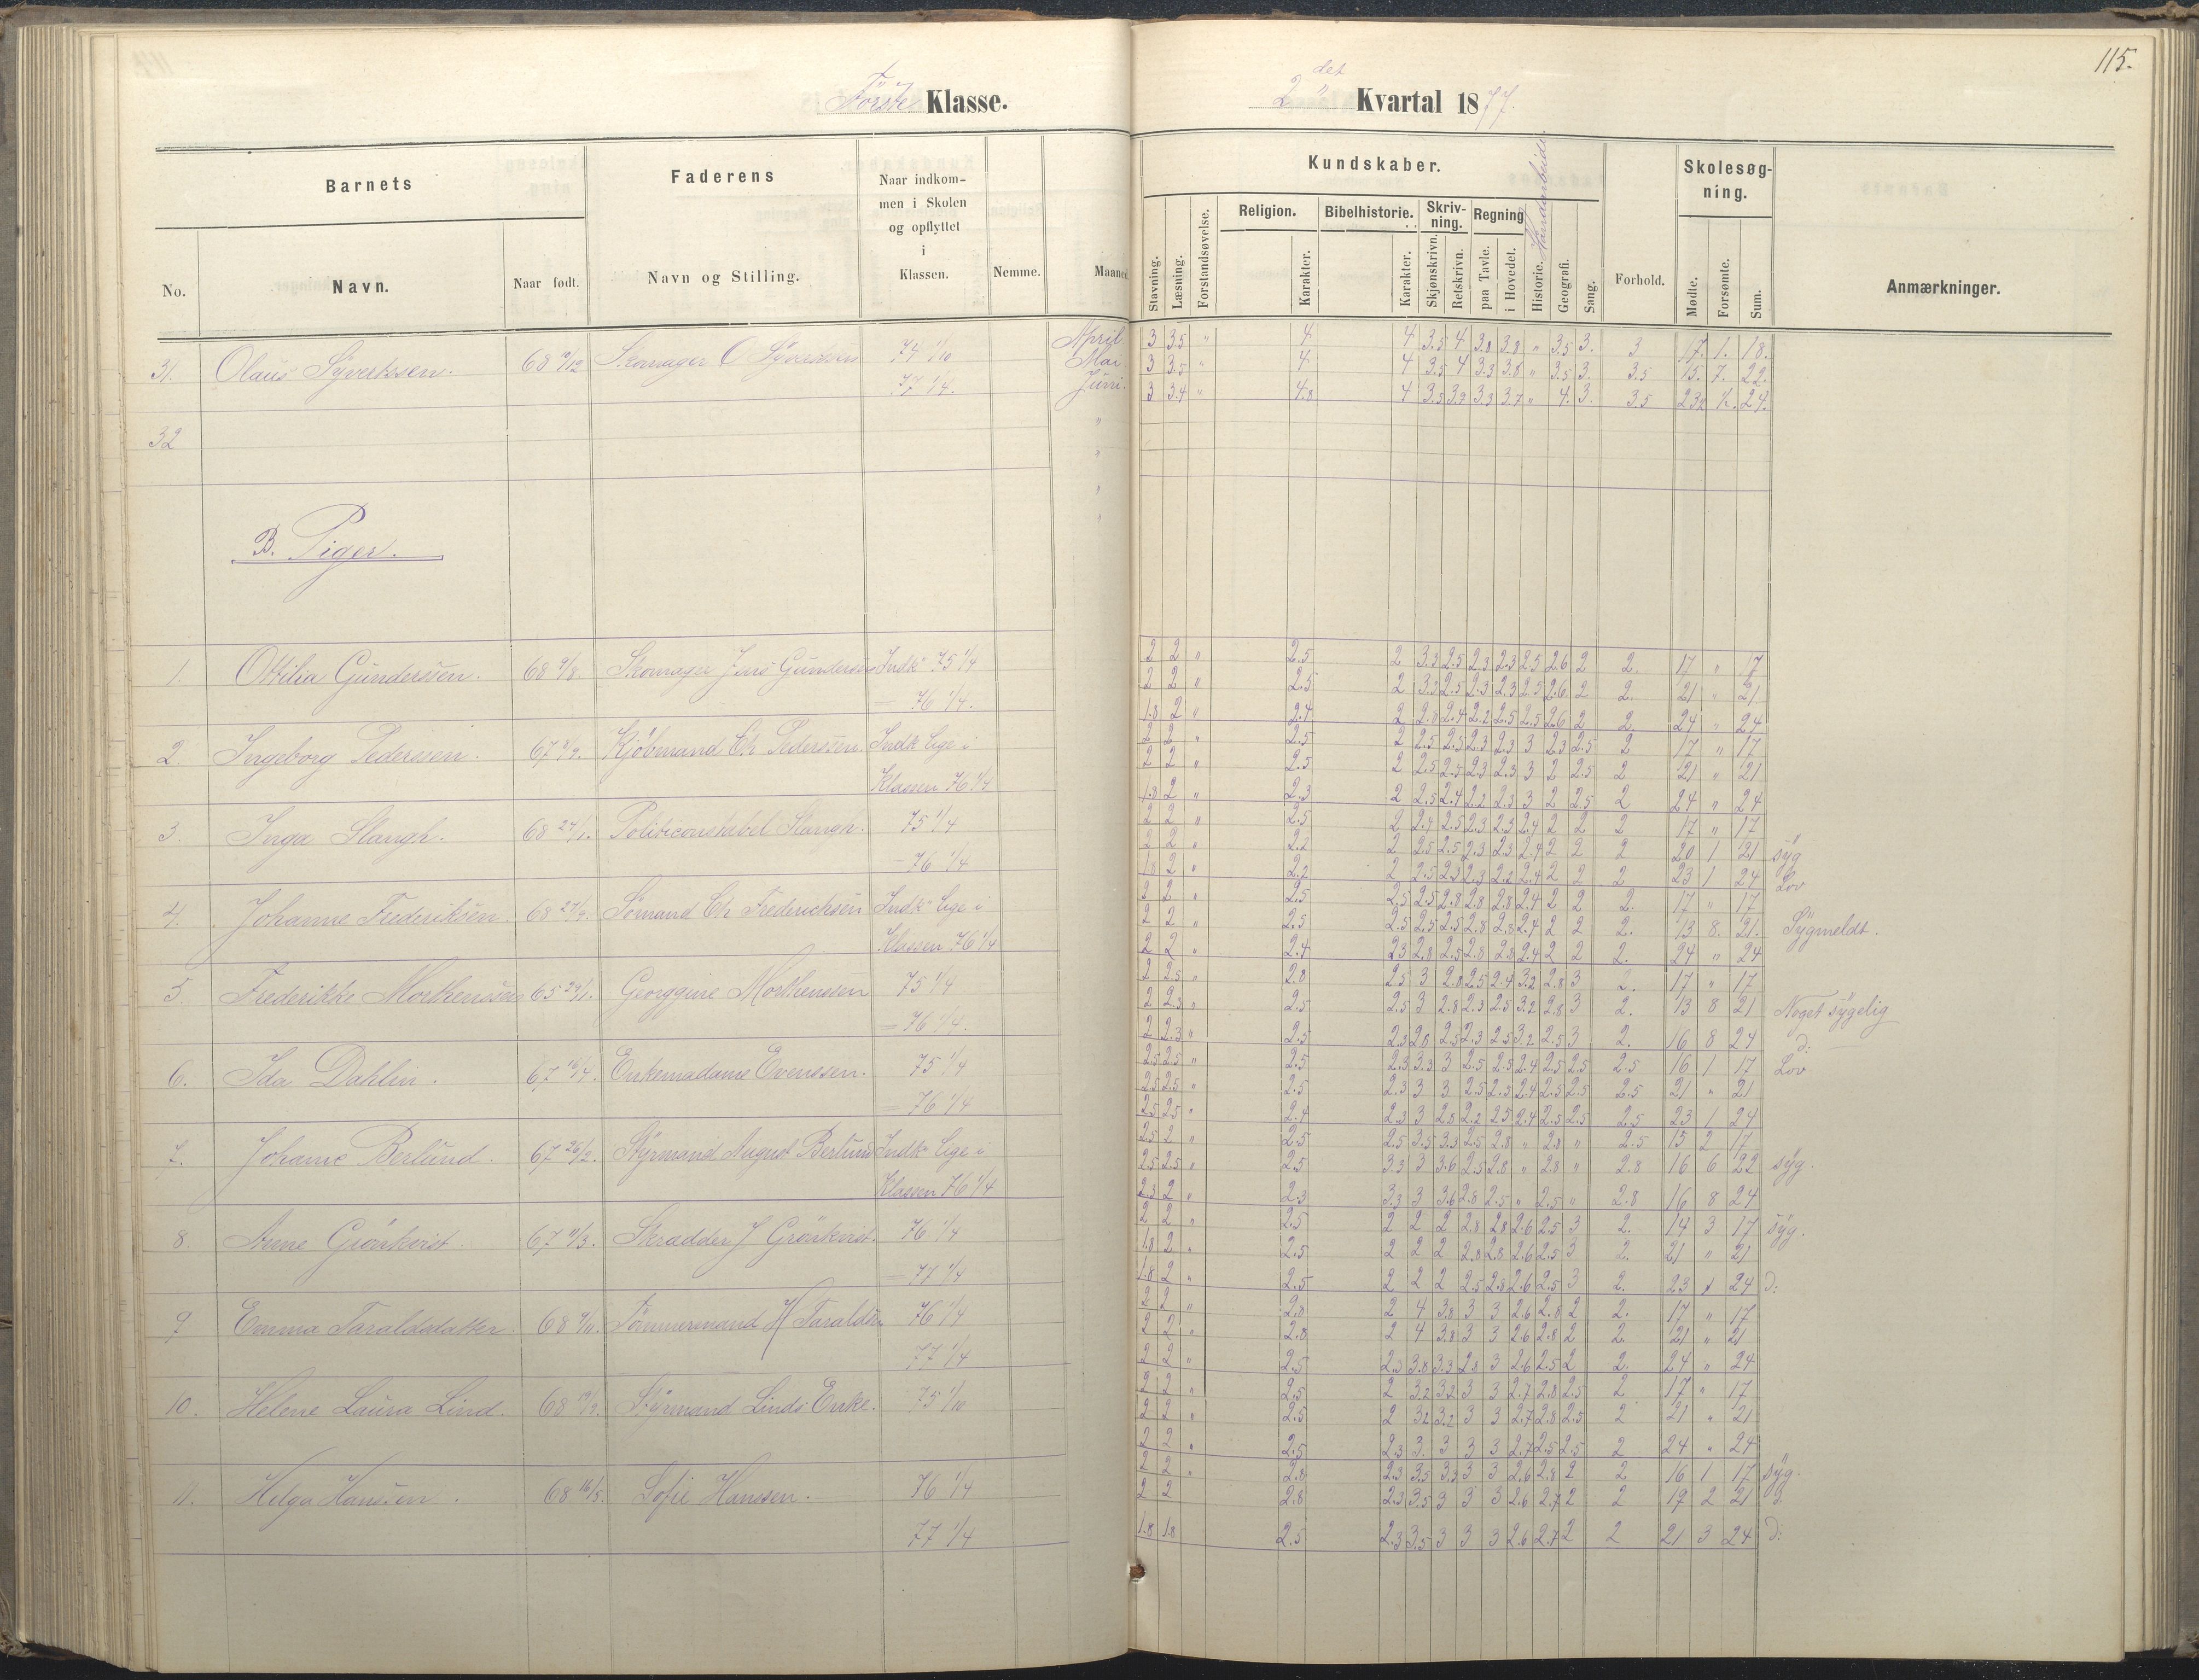 115.
Første Klasse.
2det Kvartal 1877.
Barnets
Faderens
Naar indkom-
men i Skolen
og opflyttet
i
Klassen.
No.
Navn.
Naar født.
Navn og Stilling.
Nemme.
Maaned
Kundskaber.
Haandarbeide
Stavning.
Læsning.
Forstandsøvelse.
Religion.
Karakter.
Bibelhistorie.
Karakter.
Skriv-
ning.
Skjønskrivn.
Retskrivn.
Regning
paa Tavle.
i Hovedet.
Historie.
Geografi.
Sang.
Forhold.
Skolesøg-
ning.
Mødte.
Forsømte.
Sum.
Anmærkninger.
31. Olaus Syvertsen. 68 Skomager O Syvertsen 74 1/10 April 3 3.5 " 4. 4 3.5 4 3.8 3.8 " 3.5 3. 3 17. 1. 18.
77 1/4. Mai 3 3.5 " 4. 4 3.5 4 3.3 3.8 " 3.5 3. 3.5 15. 7. 22.
Juni. 3 3.4 " 4.8 4 3.5 3.9 3.3 3.7 " 4. 3. 3.5 24.
32
B. Piger.
1. Ottilia Gundersen. 68 9/8. Skomager Jens Gundersen Indk 75 1/4 2 2 " 2.5 2 3.3 2.5 2.3 2.3 2.5 2.6 2 2. 17 " 17
2 2 " 2.5 2 3.3 2.5 2.3 2.3 2.5 2.6 2 2. 21 " 21
76 1/4. 1.8 2 " 2.4 2 2.8 2.4 2.2 2.5 2.5 2.6 2 2. 24 " 24
2 Ingeborg Pedersen. 67 Kjøbmand Ch Pedersen. Indk lige i 2 2 " 2.5 2 2.5 2.5 2.3 2.3 3 2.3 2.5 2 17 " 17
2 2 " 2.5 2 2.5 2.5 2.3 2.3 3 2 2.5 2 21 " 21
Klassen 76 1/4 1.8 2 " 2.3 2 2.5 2.4 2.2 2.3 3 2 2.5 2 24 " 24
3. Inga Stangh. 68 24/1. Politiconstabel Stangh. 75 1/4 2 2 " 2.5 2 2.7 2.5 2.3 2.3 2.4 2 2 2 17 " 17
2 2 " 2.2 2 2.5 2.5 2.3 2.3 2.4 2 2 2 20 1 21 syg
76 1/4 1.8 2 " 2.2 2 2.5 2.3 2.3 2.2 2.4 2 2 2 23 1 24 Lov
4. Johanne Frederiksen. 68 27/9. Sømand Ch Frederichsen Indk lige i 2 2 " 2.5 2.5 2.5 2.8 2.8 2.8 2.4 2 2 2. 17 " 17
2 2 " 2.5 2.5 2.5 2.5 2.8 2.8 2.4 2 2 2. 13 8. 21. Sygmeldt.
Klassen 76 1/4 2 2 " 2.4 2.3 2.8 2.5 2.8 2.8 2.4 2 2 2. 24 " 24
5. Frederikke Morthensen 65 29/1. Georggine Morthensen 75 1/4 2 2.5 " 2.8 2.5 3 2.8 2.5 2.4 3.2 2.8 3 2. 17 " 17
2 2.3 " 2.5 2.5 3 2.8 2.3 2.5 3.2 2.8 3 2. 13 8 21 Noget sygelig
= 76 1/4. 2 2.3 " 2.5 2.3 2.8 2.5 2.3 2.5 3.2 2.5 3 2. 16 8 24 d:
6. Ida Dahlin. 67 Enkemadame Evensen. 75 1/4 2.5 2.5 " 2.5 2.3 3.3 3 2.5 2.5 2.4 2.5 2.5 2.5 16 1 17 Lov
2.5 2.5 " 2.5 2.3 3 3 2.5 2.5 2.4 2.5 2.5 2.5 21 " 21
= 76 1/4 2.5 2.5 " 2.4 2.3 3 2.8 2.2 2.5 2.4 2.5 2.5 2.5 23 1 24
7. Johanne Berlund. 67 26/2. Styrmand August Berlund Indk lige i 2.5 2 " 2.5 2.5 3.5 3.3 2.5 2.8 " 2.8 " 2.5 15 2 17
2.5 2.5 " 2.5 3.3 3 3.6 2.5 2.8 " 2.8 " 2.8 16 6 22 syg.
Klassen 76 1/4 2.3 2 " 2.3 3.3 3 3.6 2.8 2.5 " 2.5 " 2.8 16 8 24
8. Anne Grönkvist. 67 11/3. Skrædder J Grönkvist. 76 1/4 2 2 " 2.5 2 2 2 2.8 2.8 2.6 2.5 3 2. 14 3 17 syg.
1.8 2 " 2.5 2 2 2 2.8 2.8 2.6 2.5 3 2. 21 " 21
= 77 1/4 1.8 2 " 2.5 2 2 2 2.5 2.8 2.6 2.5 3 2. 23 1 24 d:
9 Emma Taraldsdatter. 68 Tømmermand H Taraldsen 76 1/4 2 2 " 2.8 2 4 3.8 3 3 2.6 2.8 2 2. 17 " 17
2 2 " 2.8 2 4 3.8 3 3 2.6 2.8 2 2. 21 " 21
77 1/4 2 2 " 2.5 2.3 3.8 3.3 2.8 3 2.6 2.5 2 2. 24 " 24
10. Helene Laura Lind. 68 Styrmand Linds Enke. 75 1/10 2 2 " 2.5 2 3.2 3.2 3 3 2.7 2.8 2.5 2 17 " 17
2 2 " 2.5 2 3.2 3.2 3 3 2.7 2.8 2.5 2 21 " 21
2 2 " 2.5 2.3 3. 3 3 3 2.7 2.5 2.5 2 24 " 24
11. Helga Hansen. 68 16/5. Sofie Hanssen. 76 1/4 2 2 " 2.8 2.3 3.5 3.3 3 3 2.6 2.8 2 2 16 1 17 syg.
2 2 2.8 2.3 3.5 3 3 3 2.6 2.7 2 2 19 2 21 d.
77 1/4 1.8 1.8 2.5 2.3 3.5 3 3 3 2.6 2.7 2 2 21 3 24 d: